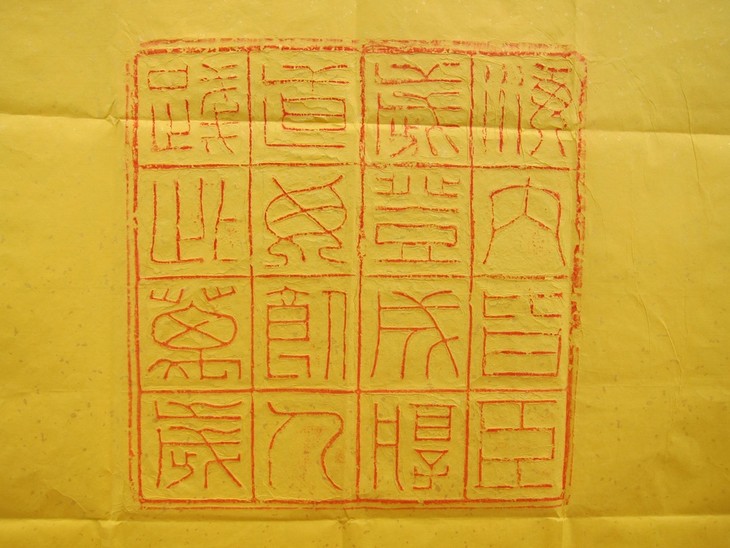 海内皆臣
歲登成孰
道毋飢人
踐此萬歲